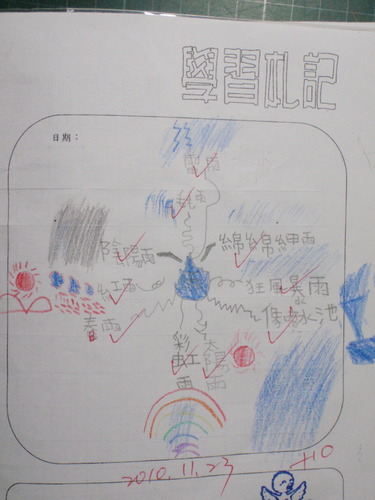 學習札記
日期：
雷雨
毛雨
陰陽雨
綿綿細雨
紅雨
狂風暴雨
春雨
像噴水池
彩虹雨
太陽雨
2010.11.23
+10